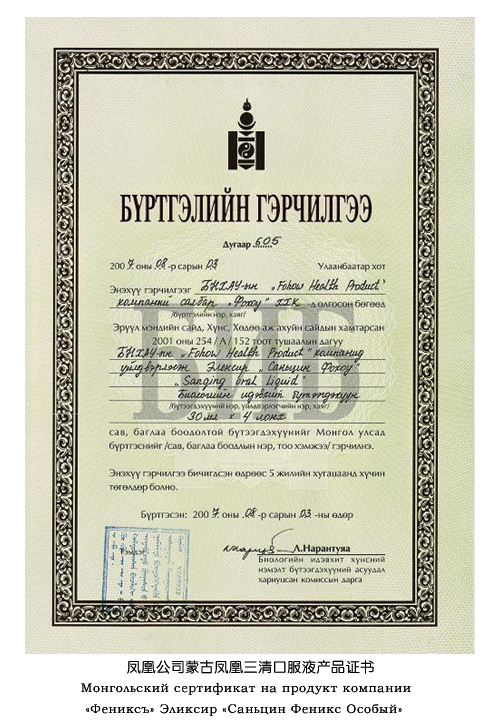 БҮРТГЭЛИЙН ГЭРЧИЛГЭЭ
Дугаар 605
2007 оны 08-р сарын 03 Улаанбаатар хот
Энэхүү гэрчилгээг БНХАУ-ын „Fohow Health Product"
компаний салбар „Фохоу" ХХК -д олгосон бөгөөд
/бүртгэлийн нэр, хаяг/
Эрүүл мэндийн сайд, Хүнс, Хөдөө аж ахуйн сайдын хамтарсан
2001 оны 254 / А / 152 тоот тушаалын дагуу
БНХАУ-ын „Fohow Health Product" компанид
үйлдвэрлэсэн Элексир „Саньцин Фохоу"
„Sanqing oral Liquid"
Биологийн идэвхит бүтээгдэхүүн
/бүтээгдэхүүний нэр, үйлдвэрлэгчийн нэр, хаяг/
30 мл x 4 лонх
сав, баглаа боодолтой бүтээгдэхүүнийг Монгол улсад
бүртгэснийг /сав, баглаа боодлын нэр, тоо хэмжээ/ гэрчилнэ.
Энэхүү гэрчилгээ бичигдсэн өдрөөс 5 жилийн хугацаанд хүчин
төгөлдөр болно.
Бүртгэсэн: 2007 оны .08-р сарын 03-ны өдөр
Тэмдэг
Л.Нарантуяа
Биологийн идэвхит хүнсний
нэмэлт бүтээгдэхүүний асуудал
хариуцсан комиссын дарга
凤凰公司蒙古凤凰三清口服液产品证书
Монгольский сертификат на продукт компании
«Фениксъ» Эликсир «Саньцин Феникс Особый»